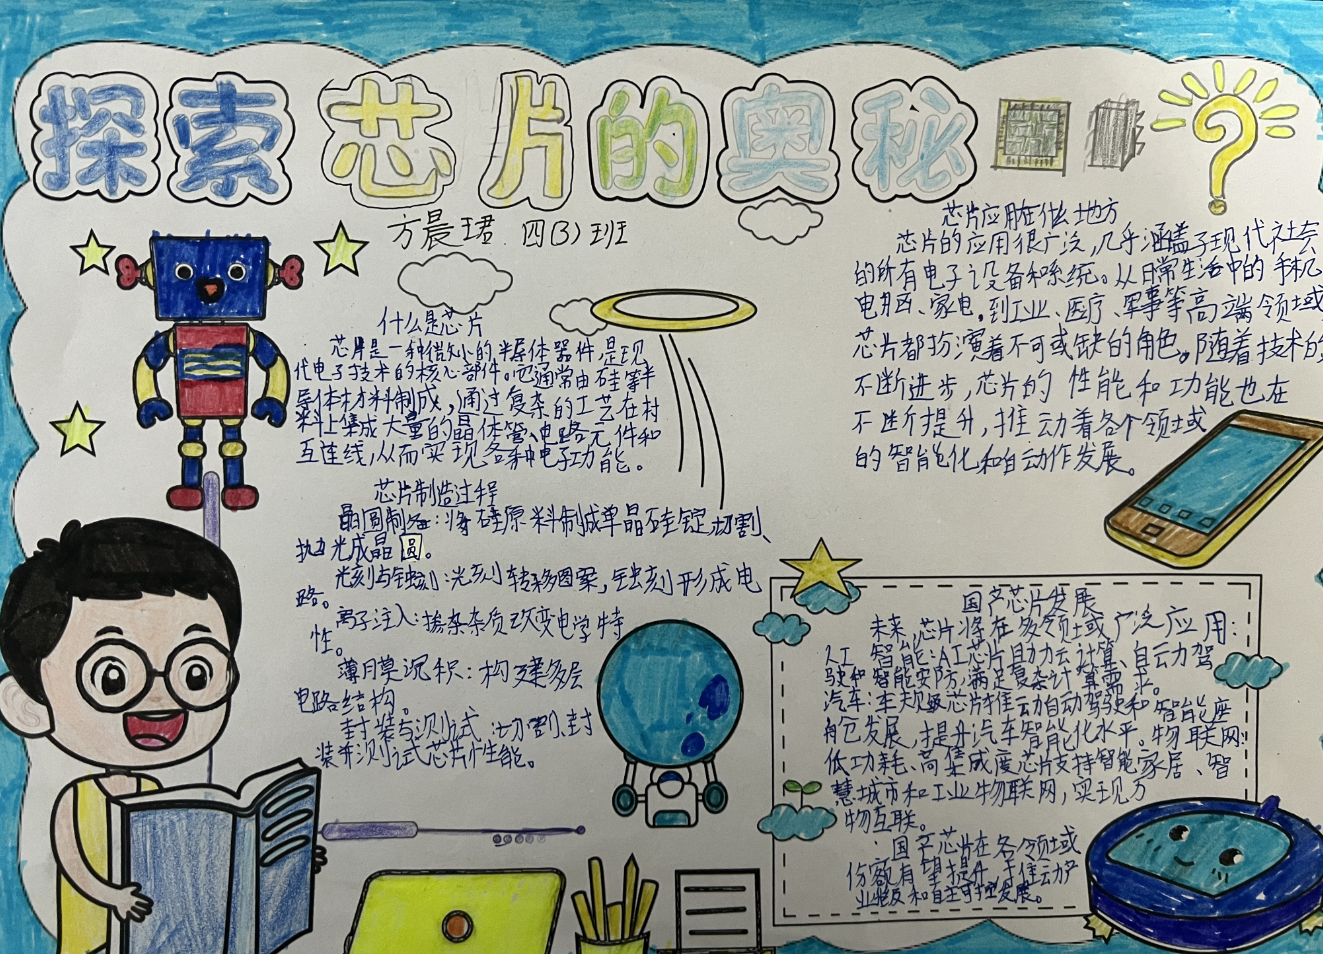 探索芯片的奥秘
方晨珺 四(3)班
什么是芯片
芯片是一种微小的半导体器件,是现
代电子技术的核心部件。它通常由硅等半
导体材料制成,通过复杂的工艺在材
料上集成大量的晶体管、电路元件和
互连线,从而实现各种电子功能。
芯片制造过程
晶圆制备:将硅原料制成单晶硅锭,切割、
抛光成晶圆。
光刻与蚀刻:光刻转移图案,蚀刻形成电
路。
离子注入:掺杂杂质改变电学特
性。
薄膜沉积:构建多层
电路结构。
封装与测试:切割、封
装并测试芯片性能。
芯片应用在什么地方
芯片的应用很广泛,几乎涵盖了现代社会
的所有电子设备和系统。从日常生活中的手机、
电脑、家电,到工业、医疗、军事等高端领域
芯片都扮演着不可或缺的角色。随着技术的
不断进步,芯片的性能和功能也在
不断提升,推动着各个领域
的智能化和自动作发展。
国产芯片发展
未来,芯片将在多领域广泛应用:
人工智能:AI芯片助力云计算、自动驾
驶和智能安防,满足复杂计算需求。
汽车:车规级芯片推动自动驾驶和智能座
舱发展,提升汽车智能化水平。物联网:
低功耗、高集成度芯片支持智能家居、智
慧城市和工业物联网,实现万
物互联。
国产芯片在各领域
份额有望提升,推动产
业升级和自主可控发展。